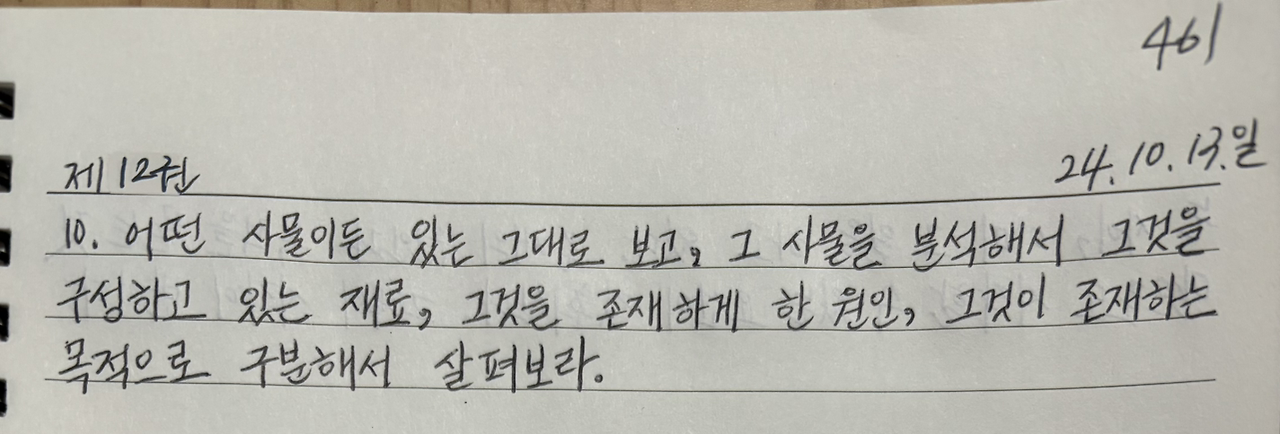 461
제12권
24.10.13.일
10. 어떤 사물이든 있는 그대로 보고, 그 사물을 분석해서 그것을
구성하고 있는 재료, 그것을 존재하게 한 원인, 그것이 존재하는
목적으로 구분해서 살펴보라.